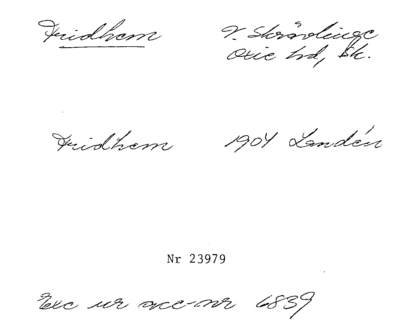 Fridhem V. Skrävlinge
Oxie hd, Sk.
Fridhem 1904 Landén
Nr 23979
Exc ur acc-nr 6839